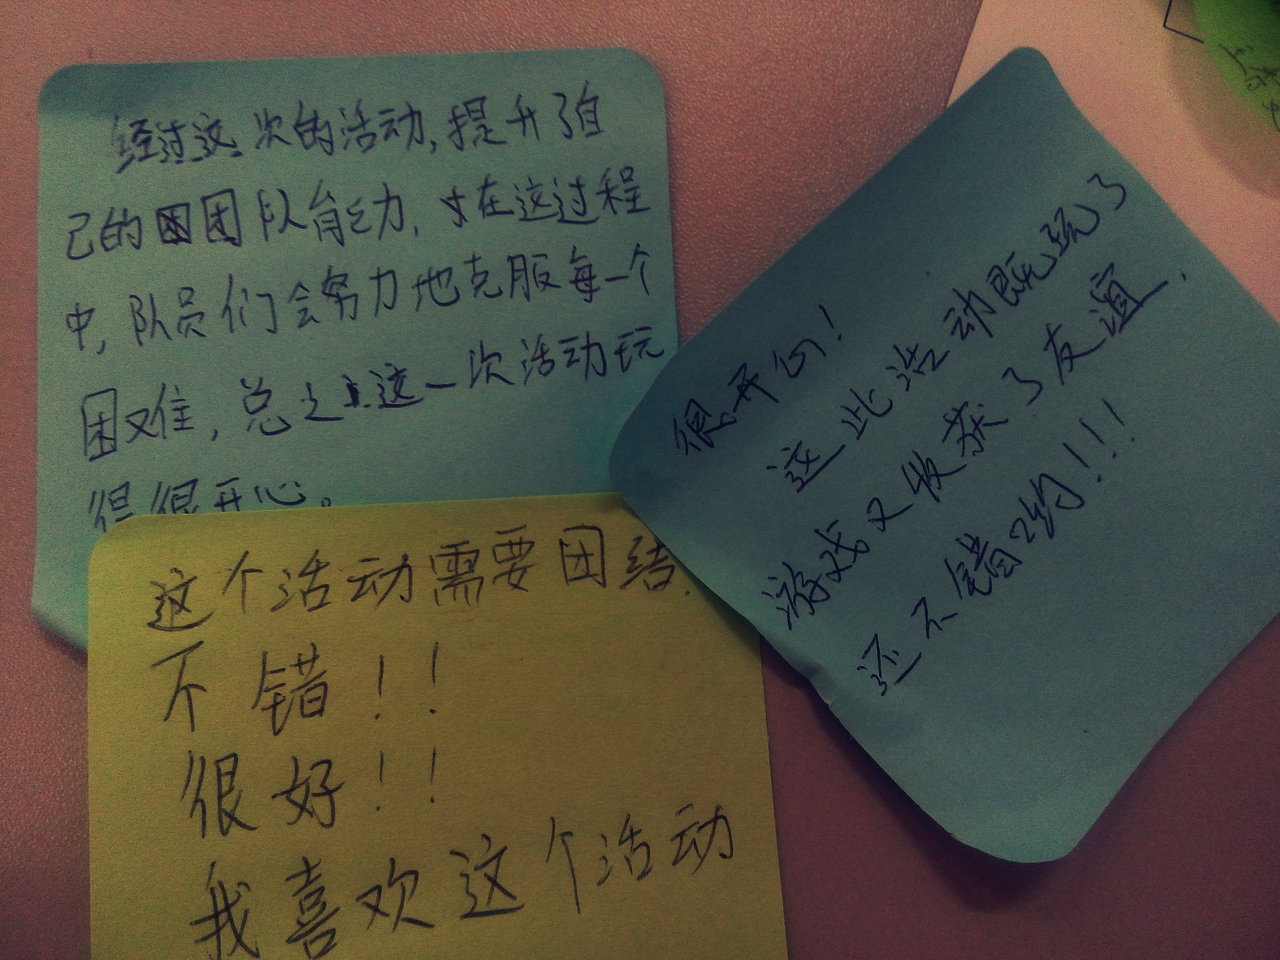 经过这次的活动,提升了自
己的团队能力,在这过程
中,队员们会努力地克服每一个
困难,总之这一次活动玩
得很开心。
这个活动需要团结.
不错!!
很好!!
我喜欢这个活动
很开心!
这此活动既玩了
游戏又收获了友谊.
还不错哟!!!